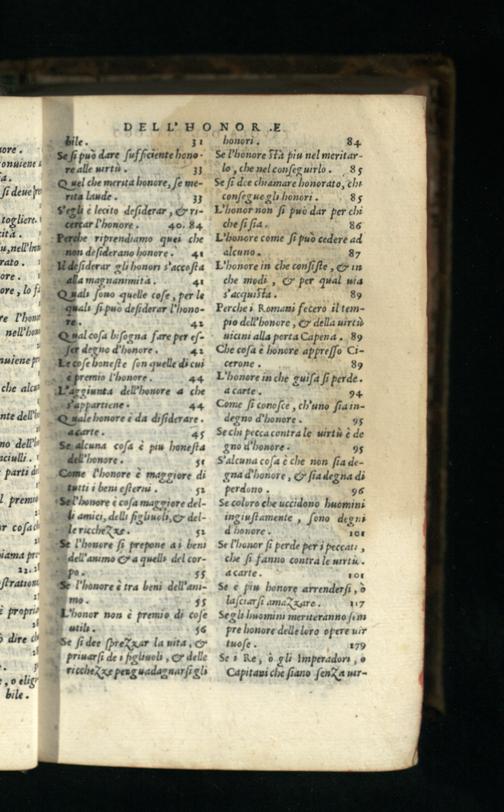 DELL'HONORE
bile. 31
Se si può dare sufficiente hono-
re alle virtù. 33
Quel che merita honore, se me-
rita laude. 33
S'egli è lecito desiderar, & ri-
cercar l'honore. 40. 84
Perche riprendiamo quei che
non desiderano honore. 41
Il desiderar gli honori s'accosta
alla magnanimità. 41
Quali sono quelle cose, per le
quali si può desiderar l'hono-
re. 42
Qual cosa bisogna fare per es-
ser degno d'honore. 42
Le cose honeste son quelle di cui
è premio l'honore. 44
L'aggiunta dell'honore a che
s'appartiene. 44
Quale honore è da disiderare.
a carte. 45
Se alcuna cosa è piu honesta
dell'honore. 51
Come l'honore è maggiore di
tutti i beni esterni. 52
Se l'honore è cosa maggiore del-
li amici, delli figliuoli, & del-
le ricchezze. 52
Se l'honore si prepone a i beni
dell'animo & a quelli del cor-
po. 55
Se l'honore è tra beni dell'ani-
mo. 55
L'honor non è premio di cose
utili. 56
Se si dee sprezzar la vita, &
privarsi de i figliuoli, & delle
ricchezze per guadagnarsi gli
honori. 84
Se l'honore stà piu nel meritar-
lo, che nel conseguirlo. 85
Se si dee chiamare honorato, chi
consegue gli honori. 85
L'honor non si può dar per chi
che si sia. 86
L'honore come si può cedere ad
alcuno. 87
L'honore in che consiste, & in
che modi, & per qual via
s'acquista. 89
Perche i Romani fecero il tem-
pio dell'honore, & della virtù
vicini alla porta Capena. 89
Che cosa è honore appresso Ci-
cerone. 89
L'honore in che guisa si perde.
a carte. 94
Come si conosce, ch'uno sia in-
degno d'honore. 95
Se chi pecca contra le virtù è de
gno d'honore. 95
S'alcuna cosa è che non sia de-
gna d'honore, & sia degna di
perdono. 96
Se coloro che uccidono huomini
ingiustamente, sono degni
d'honore. 101
Se l'honor si perde per i peccati,
che si fanno contra le virtù.
a carte. 101
Se è piu honore arrendersi, ò
lasciarsi amazzare. 117
Se gli huomini meriteranno sem
pre honore delle loro opere vir
tuose. 179
Se i Re, ò gli Imperadori, ò
Capitani che siano senza vir-